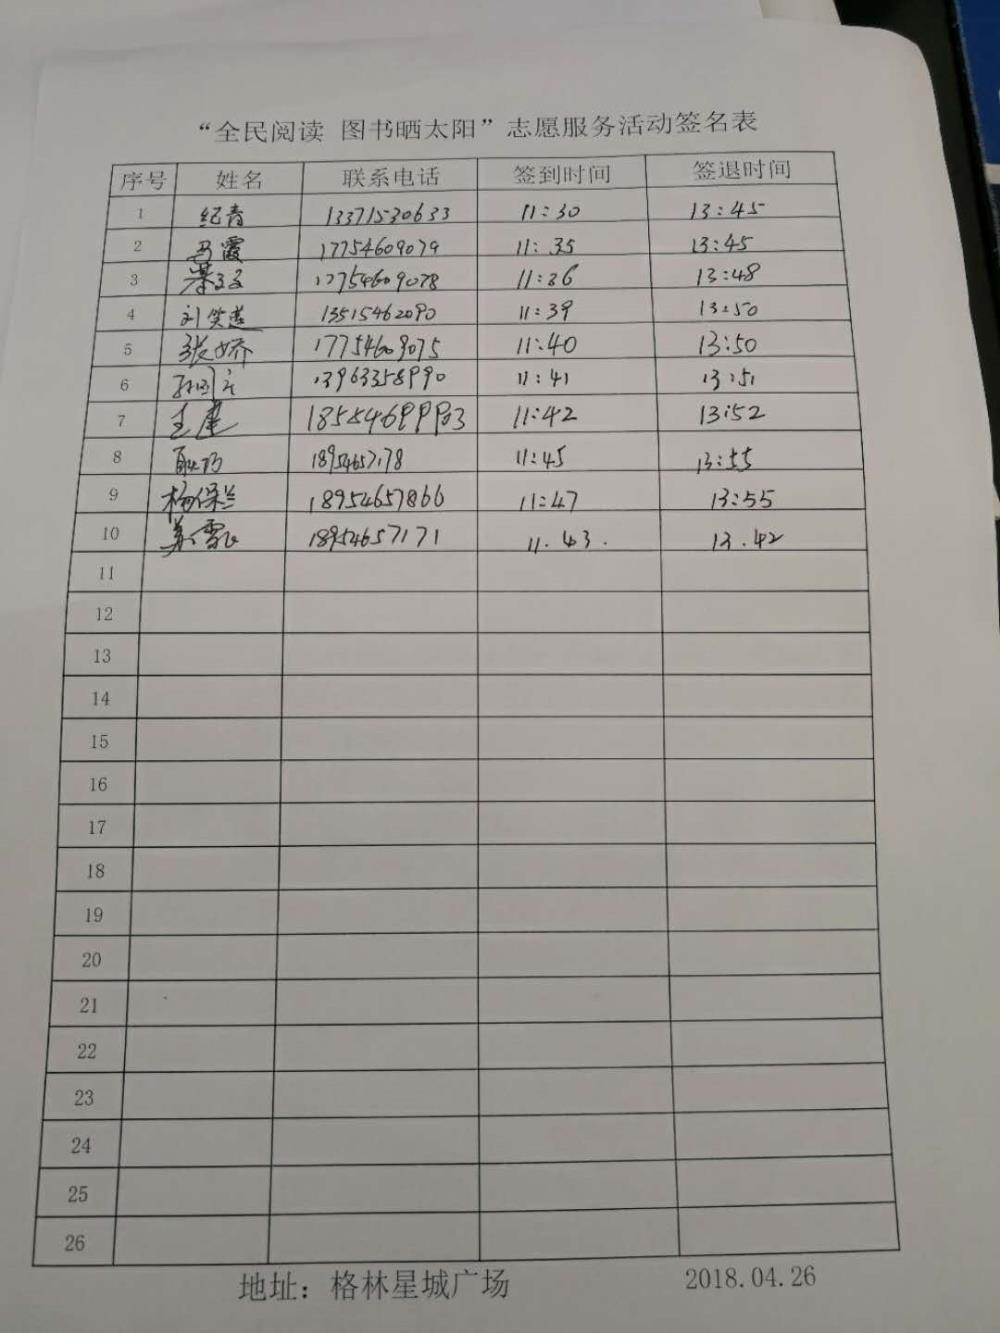 “全民阅读 图书晒太阳”志愿服务活动签名表
序号 姓名 联系电话 签到时间 签退时间
1 纪青 13371530633 11:30 13:45
2 马霞 17754609079 11:35 13:45
3 17754609078 11:36 13:48
4 刘笑莲 13515462090 11:39 13:50
5 张娇 17754609075 11:40 13:50
6 13963358990 11:41 13:51
7 王建 11:42 13:52
8 耿巧 11:45 13:55
9 杨保兰 18954657866 11:47 13:55
10 姜雪飞 18954657171 11.43. 13.42
11
12
13
14
15
16
17
18
19
20
21
22
23
24
25
26
地址：格林星城广场 2018.04.26